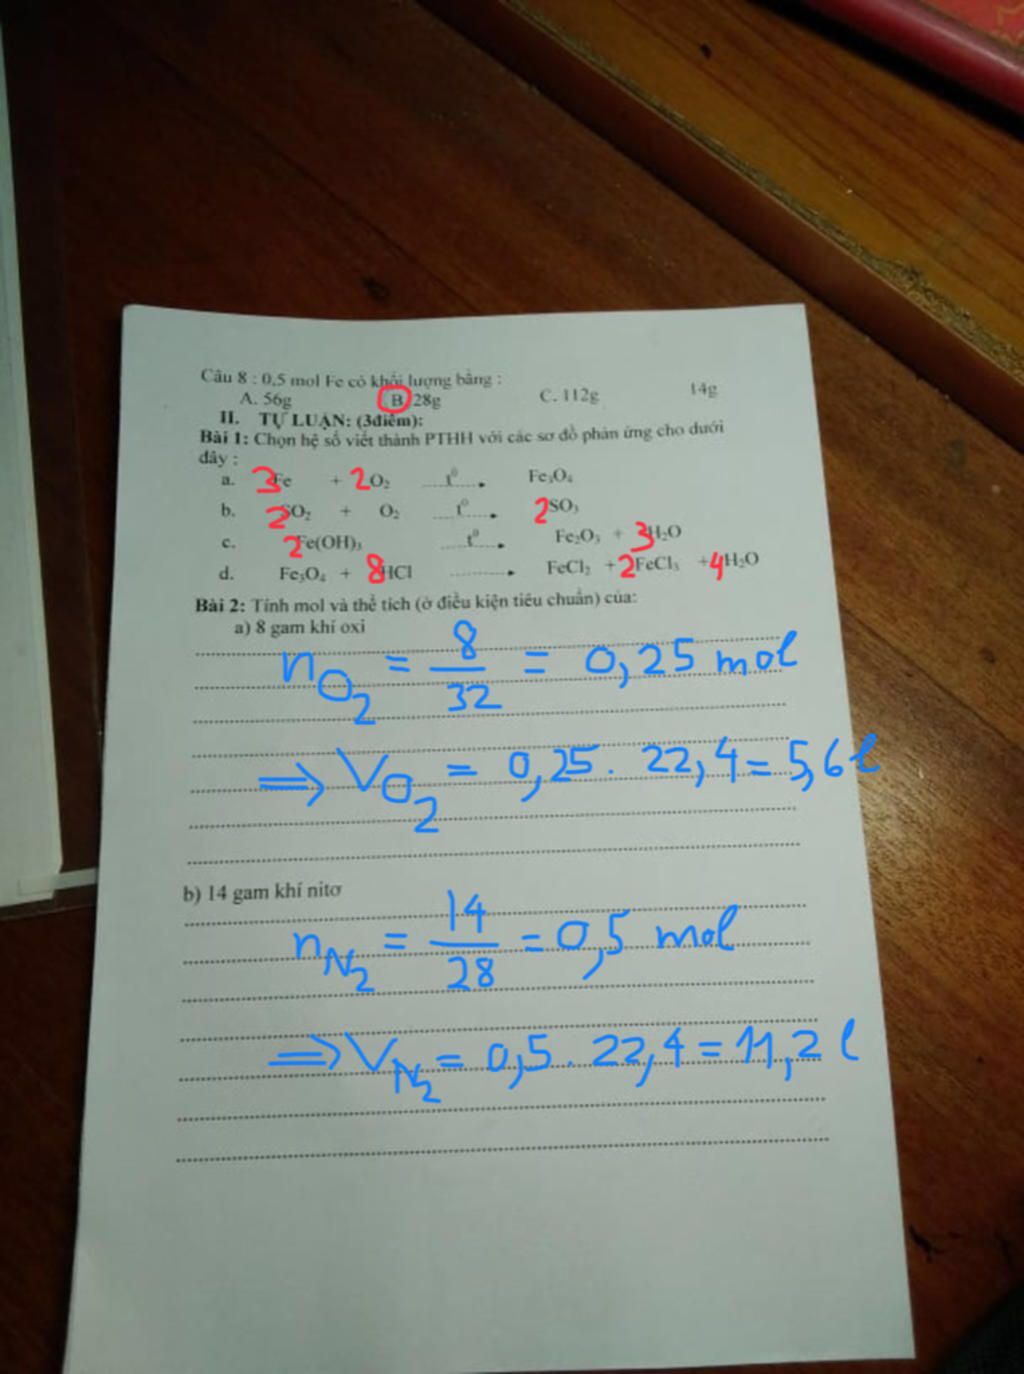 Câu 8 : 0,5 mol Fe có khối lượng bằng :
A. 56g B 28g C. 112g 14g
II. TỰ LUẬN: (3điểm):
Bài 1: Chọn hệ số viết thành PTHH với các sơ đồ phản ứng cho dưới
dây :
a. 3Fe + 2O₂ t⁰ Fe₃O₄
b. 2SO₂ + O₂ t⁰ 2SO₃
c. 2Fe(OH)₃ t⁰ Fe₂O₃ + 3H₂O
d. Fe₃O₄ + 8HCl FeCl₂ + 2FeCl₃ + 4H₂O
Bài 2: Tính mol và thể tích (ở điều kiện tiêu chuẩn) của:
a) 8 gam khí oxi
nO₂ = 8/32 = 0,25 mol
⇒ VO₂ = 0,25 . 22,4 = 5,6 l
b) 14 gam khí nitơ
nN₂ = 14/28 = 0,5 mol
⇒ VN₂ = 0,5 . 22,4 = 11,2 l